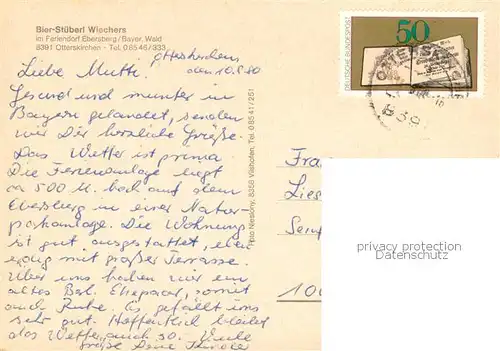 Bier-Stüberl Wiechers
im Feriendorf Ebersberg/Bayer. Wald
8391 Otterskirchen - Tel. 0 85 46/333
Otterskirchen
den 10.8.80
Liebe Mutti.
Gesund und munter in
Bayern gelandet, senden
wir Dir herzliche Grüße.
Das Wetter ist prima.
Die Ferienanlage liegt
ca 500 M. hoch auf dem
Ebersberg in einer Natur-
parkanlage. Die Wohnung
ist gut ausgestattet, eben
erdig mit großer Terrasse.
Über uns haben wir ein
altes Ehepaar, somit
auch Ruhe. Es gefällt uns
sehr gut. Hoffentlich bleibt
das Wetter auch so. Viele
Grüße Deine Kinder
Foto Nelsony, 8358 Vilshofen, Tel. 0 85 41/251
DEUTSCHE BUNDESPOST
50
OTTERS
839
Fra
Lies
Sem
100
privacy protection
Datenschutz